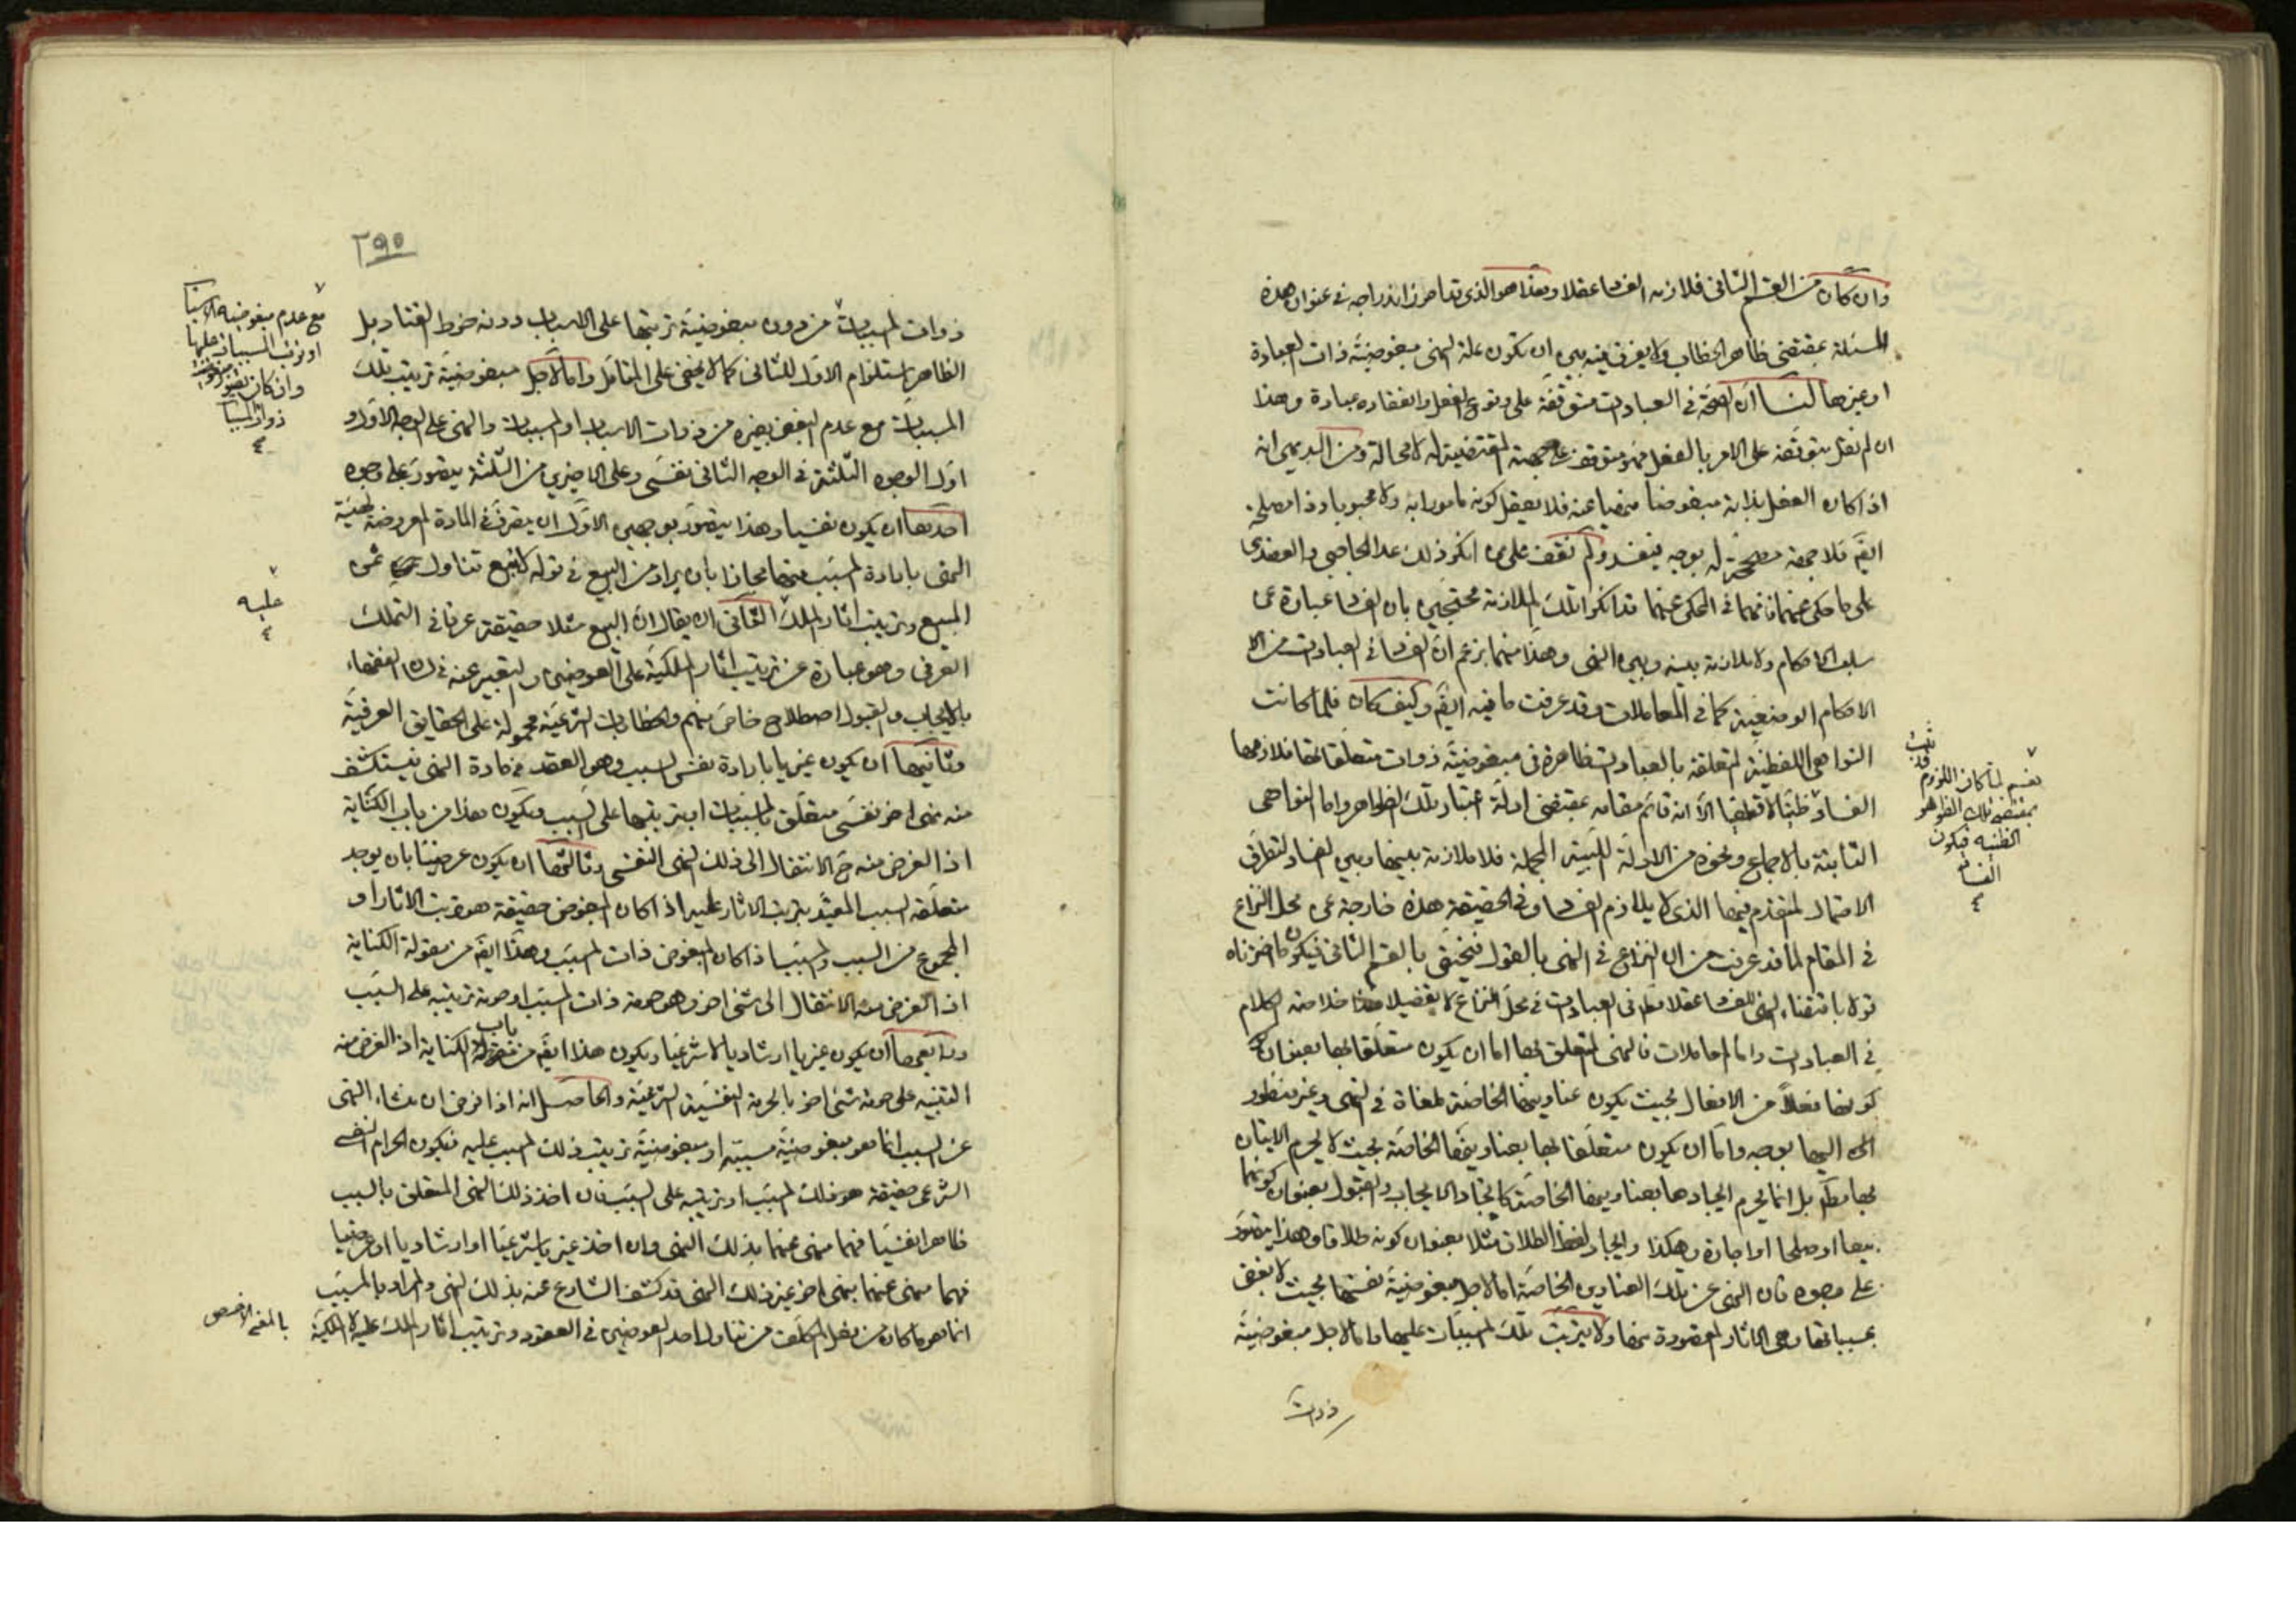 وان كان من القسم الثاني فلازمه الفساد عقلا وهذا هو الذي تداحرزنا اندراجه في عنوان هذه
المسئلة بمقتضى ظاهر الخطاب ولا يفرق فيه بين ان تكون علة النهي مبغوضية ذات العبادة
او غيرها لنا ان الصحة في العبادات متوقفة على وقوع الفعل وانعقاده عبادة وهذا
ان لم نقل بتوقفه على الامر بالفعل فهو متوقف على جهة المقتضية له لا محالة ومن البديهي انه
اذا كان الفعل بذاته مبغوضا منهيا عنه فلا يعقل كونه مامورا به ولا محبوبا وذا مصلحة
ايضا فلا جهة مصححة له بوجه فيفسد ولم نقف على من انكر ذلك عدا الحاجبي والعضدي
على ما حكي عنهما فانهما في المحكي عنهما قد انكرا تلك الملازمة محتجين بان الفساد عبارة عن
سلب الاحكام ولا ملازمة بينه وبين النهي وهذا منهما بزعم ان الفساد في العبادات من الا
الاحكام الوضعية كما في المعاملات وقد عرفت ما فيه ايضا وكيف كان فلما كانت
النواهي اللفظية المتعلقة بالعبادات ظاهرة في مبغوضية ذوات متعلقاتها فلازمها
الفساد ظنيا لا قطعيا الا انه قائم مقامه بمقتضى ادلة اعتبار تلك الظواهر واما النواهي
الثابتة بالاجماع ونحوه من الادلة اللبية المجملة فلا ملازمة بينها وبين الفساد لتطرق
الاحتمال المتقدم فيها الذي لا يلازم الفساد وفي الحقيقة هذه خارجة عن محل النزاع
في المقام لما قد عرفت من ان النزاع في النهي بالقول فيختص بالقسم الثاني فيكون ما اخترناه
قولا باقتضاء النهي للفساد عقلا مطلقا في العبادات في محل النزاع لا تفصيلا هذا خلاصة الكلام
في العبادات واما المعاملات فالنهي المتعلق بها اما ان يكون متعلقا بها بعنوان
كونها فعلا من الافعال بحيث يكون عناوينها الخاصة ملغاة في النهي وغير منظور
اليها بوجه واما ان يكون متعلقا بها بعناوينها الخاصة بحيث لا يحرم الاتيان
بها مطلقا بل انما يحرم ايجادها بعناوينها الخاصة كايجاد الايجاب والقبول بعنوان كونهما
بيعا او صلحا او اجارة وهكذا وايجاد لفظ الطلاق مثلا بعنوان كونه طلاقا وهذا يتصور
على وجوه فان النهي عن تلك العناوين الخاصة اما لاجل مبغوضية نفسها بحيث لا بغض
بمسبباتها وهي الاثار المقصودة منها ولا بترتب تلك المسببات عليها واما لاجل مبغوضية
ذوات
نعم لما كان اللزوم
بمقتضى تلك الظواهر
الظنية فيكون
الفساد
٢٩٥
ذوات المسببات من دون مبغوضية ترتبها على الاسباب ودونه خرط القتاد بل
الظاهر استلزام الاول للثاني كما لا يخفى على المتامل واما لاجل مبغوضية ترتيب تلك
المسببات مع عدم البغض بغيره من ذوات الاسباب او المسببات والنهي على الوجه الاول و
اول الوجوه الثلثة في الوجه الثاني نفسي وعلى الاخيرين من الثلثة يتصور على وجوه
احدها ان يكون نفسيا وهذا يتصور بوجهين الاول ان يتصرف في المادة المعروضة لهيئة
النهي بارادة المسبب منها مجازا بان يراد من البيع في قوله لا تبع تناول ثمن
المبيع وترتيب اثار الملك الثاني ان يقال ان البيع مثلا حقيقة عرفا في التملك
العرفي وهو عبارة عن ترتيب اثار الملكية على العوضين والتعبير عنه في لسان الفقهاء
بالايجاب والقبول اصطلاح خاص منهم والخطابات الشرعية محمولة على الحقايق العرفية
وثانيها ان يكون غيريا بارادة نفس السبب وهو العقد من مادة النهي فيستكشف
منه نهي اخر نفسي متعلق بالمسببات او بترتيبها على السبب ويكون هذا من باب الكناية
اذ الغرض منه ح الانتقال الى ذلك النهي النفسي وثالثها ان يكون عرضيا بان يوجد
متعلقه السبب المقيد بترتب الاثار عليه اذا كان المبغوض حقيقة هو ترتب الاثار او
المجموع من السبب والمسبب اذا كان المبغوض ذات المسبب وهذا ايضا من مقولة الكناية
اذ الغرض منه الانتقال الى شيء اخر وهو حرمة ذات المسبب او حرمة ترتيبه على السبب
ورابعها ان يكون غيريا ارشاديا لا شرعيا ويكون هذا ايضا من باب الكناية اذ الغرض منه
التنبيه على حرمة شيء اخر بالحرمة النفسية الشرعية والحاصل انه اذا فرض ان منشاء النهي
عن السبب انما هو مبغوضية مسببه او مبغوضية ترتيب ذلك المسبب عليه فيكون الحرام النفسي
الشرعي حقيقة هو ذلك المسبب او ترتيبه على السبب فان اخذ ذلك النهي المتعلق بالسبب
ظاهرا نفسيا فهما منهي عنهما بذلك النهي وان اخذ غيريا شرعيا او ارشاديا او عرضيا
فهما منهي عنهما بنهي اخر غير ذلك النهي قد كشف الشارع عنه بذلك النهي والمراد بالمسبب
انما هو ما كان من فعل المكلف من تناول احد العوضين في العقود وترتيب اثار الملك عليه لا الملكية
مع عدم مبغوضية الاسباب
او ترتب المسببات عليها
وان كان
ذوات المسببات
عليه
بالمعنى الاخص